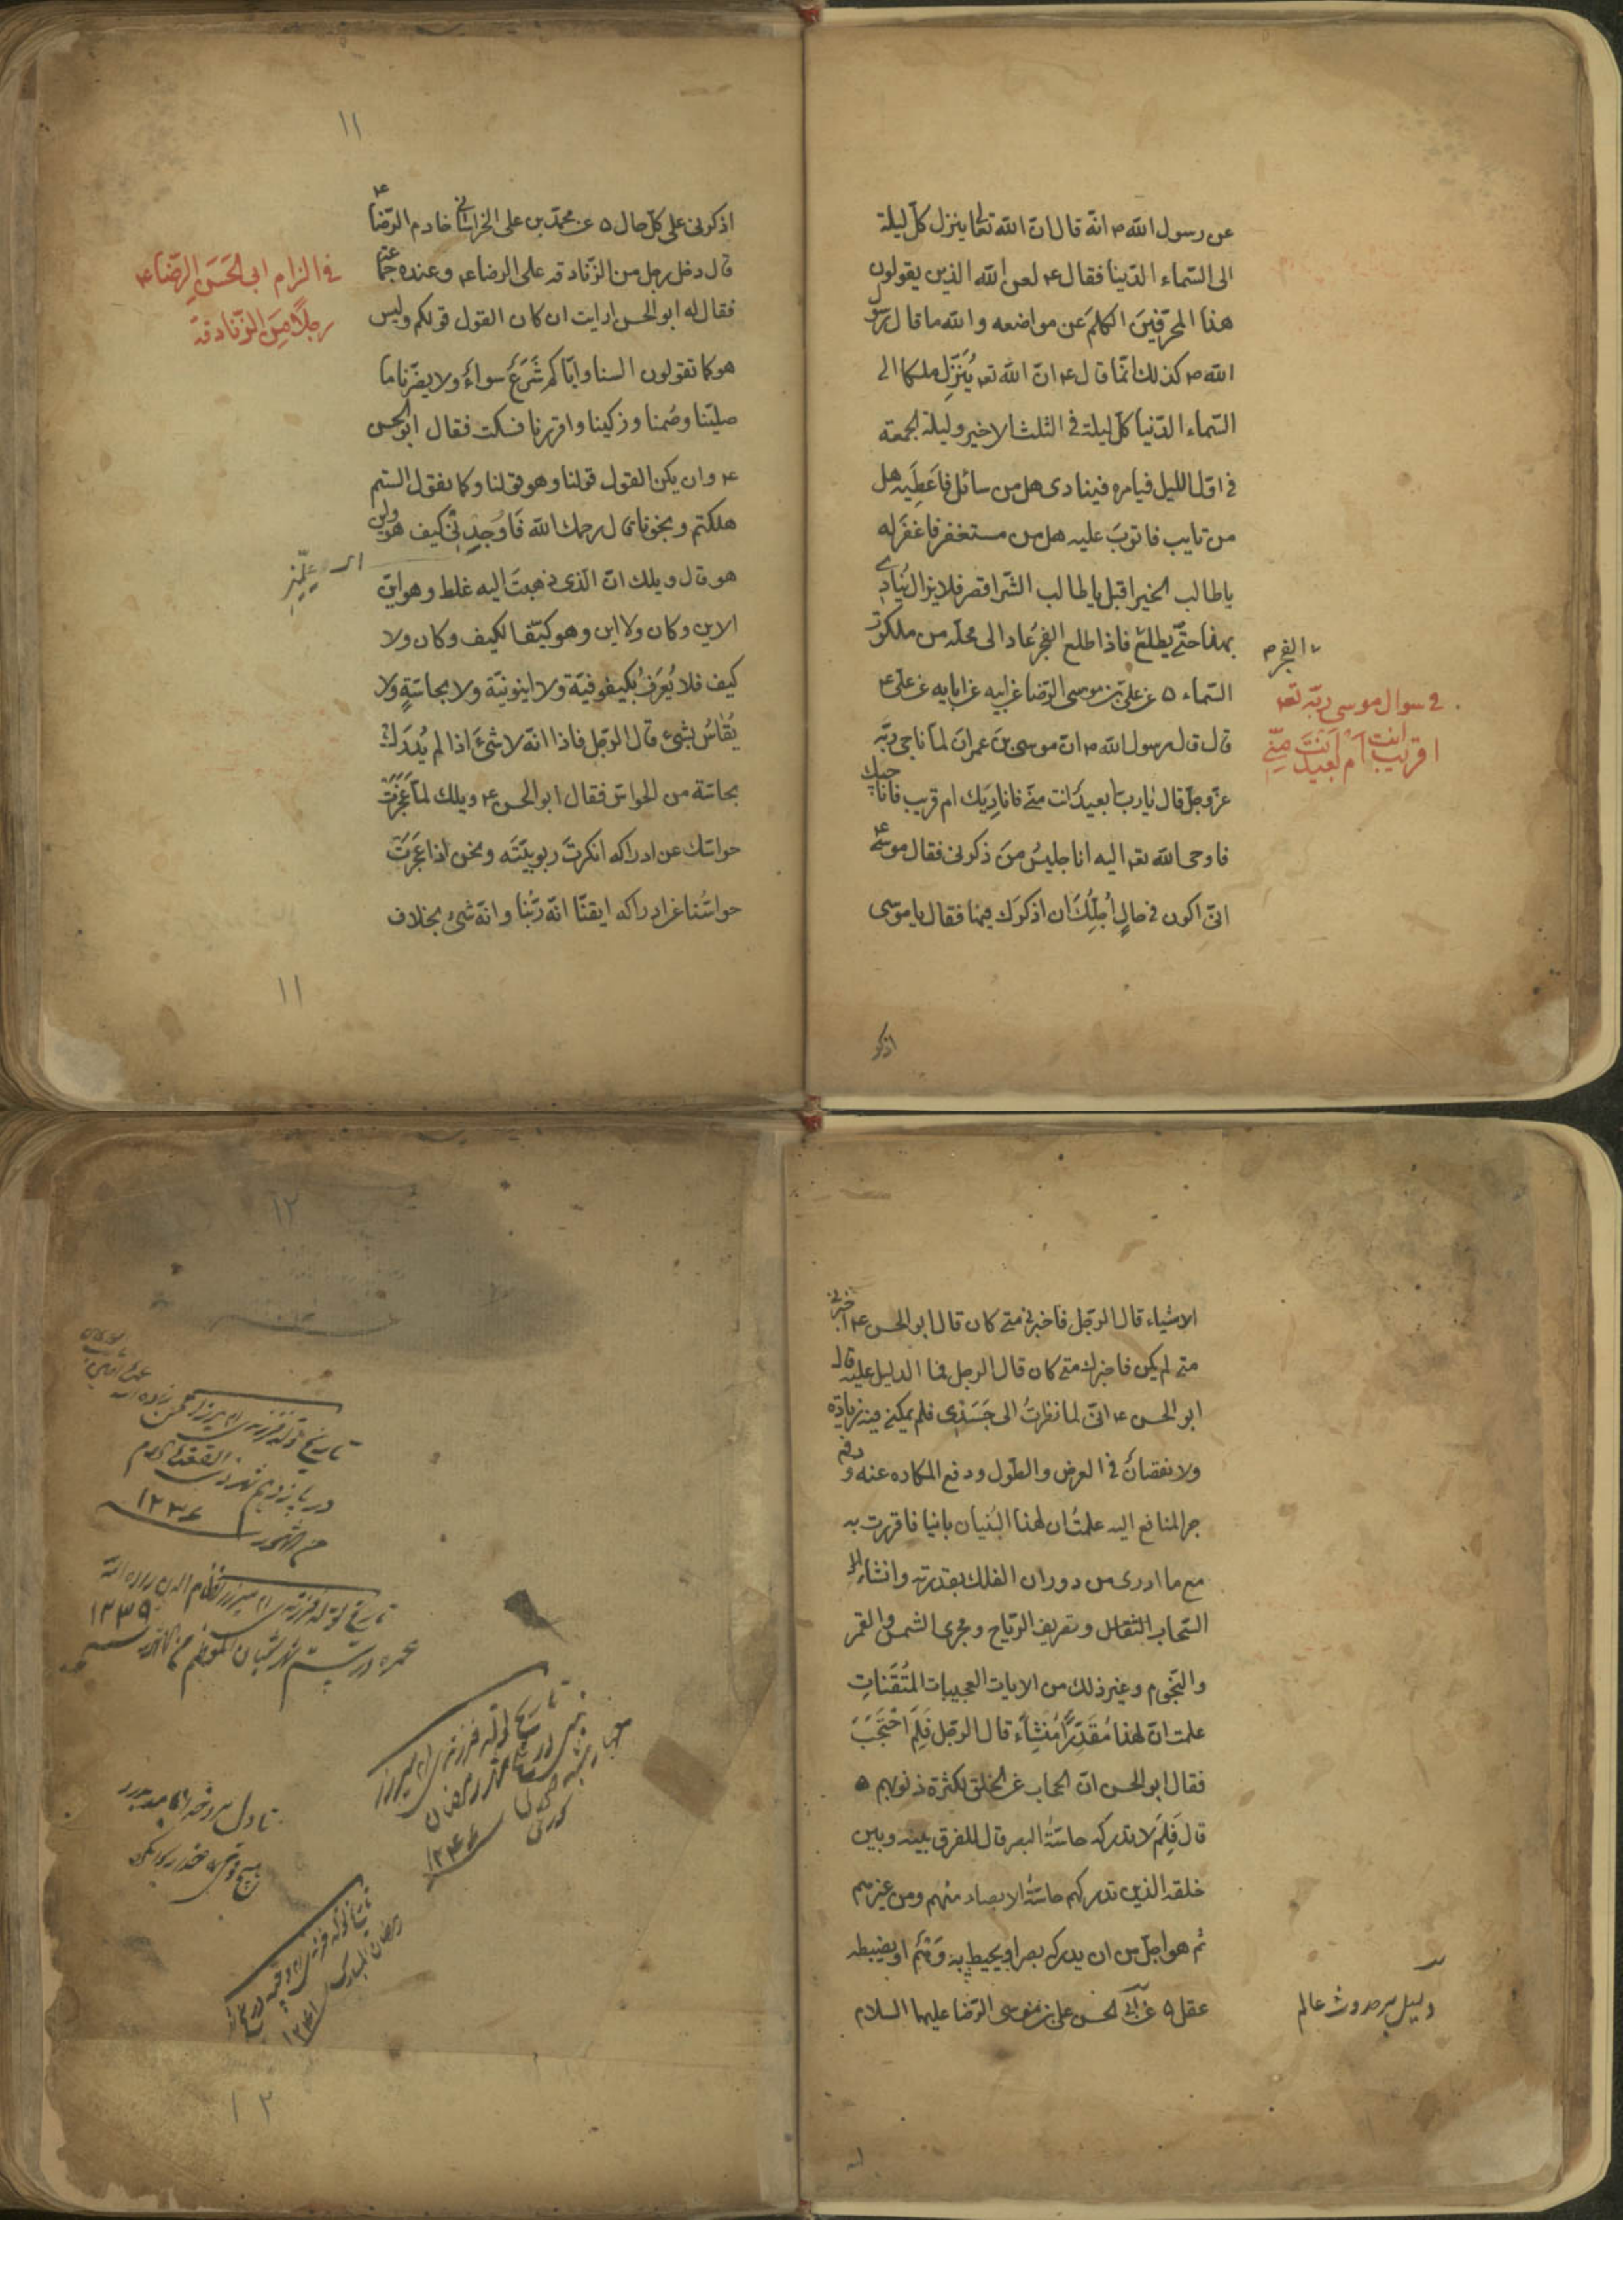 عن رسول الله ص انّه قال انّ الله تعالى ينزل كلّ ليلة
الى السّماء الدّنيا فقال ع لعن الله الذين يقولون
هذا المحرّفين الكلم عن مواضعه و الله ما قال رسول
الله ص كذلك انّما قال ع انّ الله تعـ يُنَزِّل ملكا الى
السّماء الدّنيا كلّ ليلة فى الثلث الاخير و ليلة الجمعة
فى اوّل الليل فيامره فينادى هل من سائل فاعطيه هل
من تايب فاتوب عليه هل من مستغفر فاغفر له
ياطالب الخير اقبل ياطالب الشّر اقصر فلايزال يُنادى
بهذا حتّى يطلع فاذا طلع الفجر عاد الى محلّه من ملكوت
الفجر م
السّماء ٥ عن علىّ بن موسى الرّضا عن ابيه عن ابايه عن على ع
فى سوال موسى ربّه تعـ
اقريب انت ام بَعيدٌ انتَ مِنّى
قال قال رسول الله ص انّ موسى بن عمران لمّا ناجى ربّه
عزّوجلّ قال يا ربّ ابعيدٌ انت منّى فاناديك ام قريب فاناجيك
فاوحى الله تعـ اليه انا جليسُ من ذكرنى فقال موسى ع
انّى اكون فى حالٍ اُجِلُّكَ ان اذكرك فيها فقال ياموسى
اذكر
١١
اذكرنى على كلّ حال ٥ عن محمّد بن على الخراسانى خادم الرّضا ع
قال دخل رجل من الزّنادقه على الرضا ع و عنده جماعة
فى الزام ابى الحَسَنِ الرّضا ع
رجلًا مِنَ الزّنادقة
فقال له ابو الحسن ارايت ان كان القول قولكم و ليس
هو كما تقولون السنا و ايّاكم شَرَعٌ سواءً و لا يضرّنا ما
صلّينا و صُمنا و زكّينا و اقررنا فسكت فقال ابو الحسن
ع و ان يكن القول قولنا و هو قولنا و كما نقول الستم
هلكتم و نجونا قال رحمك الله فَاوْجِدْنى كيف هو و اين
هو قال ويلك انّ الّذى ذهبتَ اليه غلط و هو ايّن
الاين و كان و لا اين و هو كيّف الكيف و كان و لا
كيف فلا يُعرَفُ بكيفوفيّة و لا اينونيّة و لا بحاسّةٍ و لا
يُقاسُ بشىء قال الرّجل فاذا انّه لا شىءَ اذا لم يُدرَك
بحاسّة من الحواسّ فقال ابو الحسن ع ويلك لمّا عَجَزَتْ
حواسّك عن ادراكه انكرتَ ربوبيّتَه و نحن اذا عَجَزَتْ
حواسُّنا عن ادراكه ايقنّا انّه ربّنا و انّه شىءٌ بخلاف
١١
الاشياء قال الرّجل فاخبرنى متى كان قال ابو الحسن ع اخبرنى
متى لم يكن فاخبرك متى كان قال الرجل فما الدليل عليه قال
ابو الحسن ع انّى لما نظرتُ الى جَسَدِى فلم يمكنّى فيه زيادة
و لا نقصانٌ فى العرض و الطّول و دفع المكاره عنه و
جر المنافع اليه علمتُ ان لهذا البُنيان بانيا فاقررت به
مع ما ادرى من دوران الفلك بقدرته و انشاء
السّحاب الثقال و تصريف الرّياح و مجرى الشمس و القمر
و النّجوم و غير ذلك من الايات العجيبات المُتقَناتِ
علمت انّ لهذا مُقَدِّرًا مُنشِأً قال الرّجل فَلِمَ احْتَجَبَ
فقال ابو الحسن انّ الحجاب عن الخلق لكثرة ذنوبهم ٥
قال فَلِمَ لا تدركه حاسّةُ البصر قال للفرق بينه و بين
خلقه الذين تدركهم حاسّةُ الابصار منهم و من غيرهم
ثم هو اجلّ من ان يدركه بصر او يحيط به وَهْمٌ او يضبطه
عقل ٥ عن ابى الحسن على بن موسى الرّضا عليهما السلام
دليل بر حدوث عالم
١٢
تاريخ تولد فرزندى
در يازدهم شهر
١٢٣٤
تاريخ تولد فرزندى ميرزا نظام الدين
١٢٣٩
شهر شعبان المعظم
تاريخ تولد فرزندى ميرزا
در شهر رمضان
١٢٤٤
تاريخ تولد فرزندى
رمضان المبارك
١٢٤١
١٢